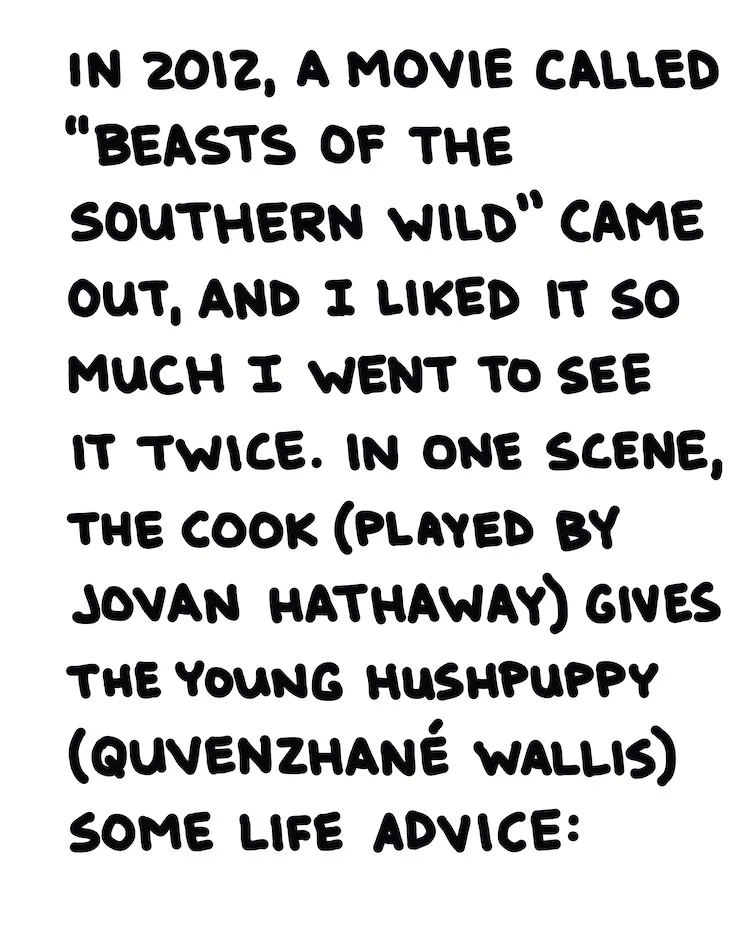 IN 2012, A MOVIE CALLED
"BEASTS OF THE
SOUTHERN WILD" CAME
OUT, AND I LIKED IT SO
MUCH I WENT TO SEE
IT TWICE. IN ONE SCENE,
THE COOK (PLAYED BY
JOVAN HATHAWAY) GIVES
THE YOUNG HUSHPUPPY
(QUVENZHANÉ WALLIS)
SOME LIFE ADVICE: